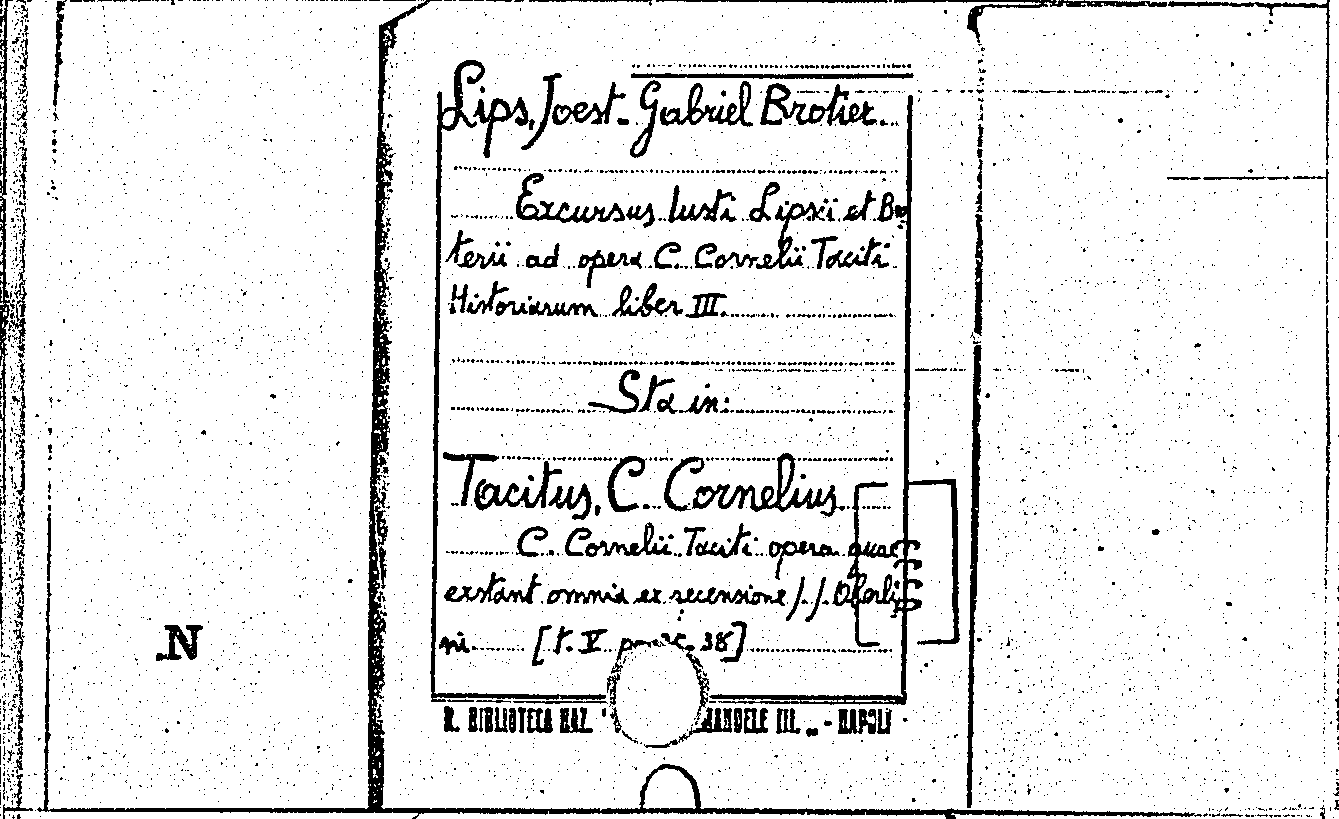 Lips, Joest - Gabriel Brotier.
Excursus Iusti Lipsii et Bro
terii ad opera C. Cornelii Taciti
Historiarum liber III.
Sta in:
Tacitus, C. Cornelius.
C. Cornelii Taciti opera quae
exstant omnia ex recensione J. J. Oberli
ni. [t. V 38]
N.
R. BIBLIOTECA NAZ. III. - NAPOLI